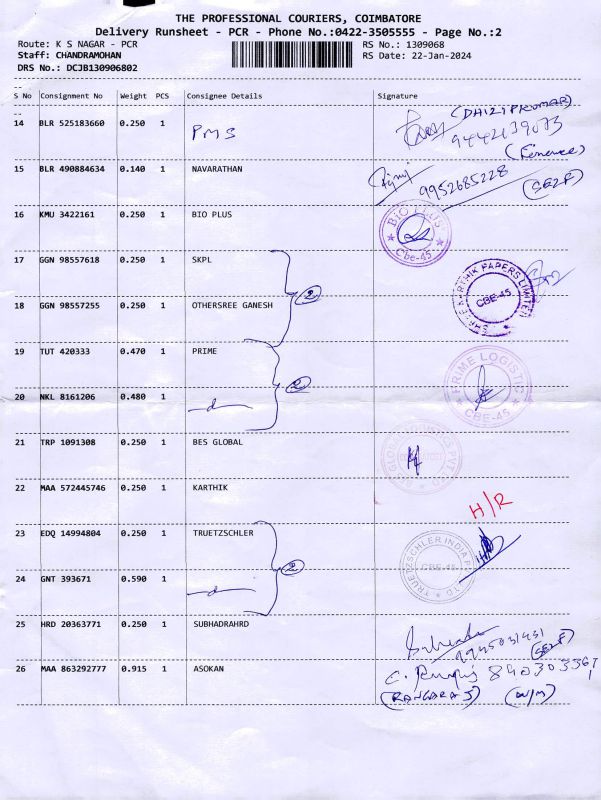 THE PROFESSIONAL COURIERS, COIMBATORE
Delivery Runsheet - PCR - Phone No.:0422-3505555 - Page No.:2
Route: K S NAGAR - PCR
RS No.: 1309068
Staff: CHANDRAMOHAN
RS Date: 22-Jan-2024
DRS No.: DCJB130906802
S No Consignment No Weight PCS Consignee Details Signature
14 BLR 525183660 0.250 1 PMS (DHILIPKUMAR)
9442139073
15 BLR 490884634 0.140 1 NAVARATHAN 9952685228
(SELF)
16 KMU 3422161 0.250 1 BIO PLUS BIO PLUS Cbe-45
17 GGN 98557618 0.250 1 SKPL
2 SHREE KARTHIK PAPERS LIMITED CBE-45
18 GGN 98557255 0.250 1 OTHERSREE GANESH
19 TUT 420333 0.470 1 PRIME
2 PRIME LOGISTIC CBE-45
20 NKL 8161206 0.480 1 -d-
21 TRP 1091308 0.250 1 BES GLOBAL
22 MAA 572445746 0.250 1 KARTHIK H/R
23 EDQ 14994804 0.250 1 TRUETZSCHLER
2 TRUETZSCHLER INDIA CBE-45
24 GNT 393671 0.590 1 -d-
25 HRD 20363771 0.250 1 SUBHADRAHRD
(SELF)
26 MAA 863292777 0.915 1 ASOKAN
(RANGARAJ)